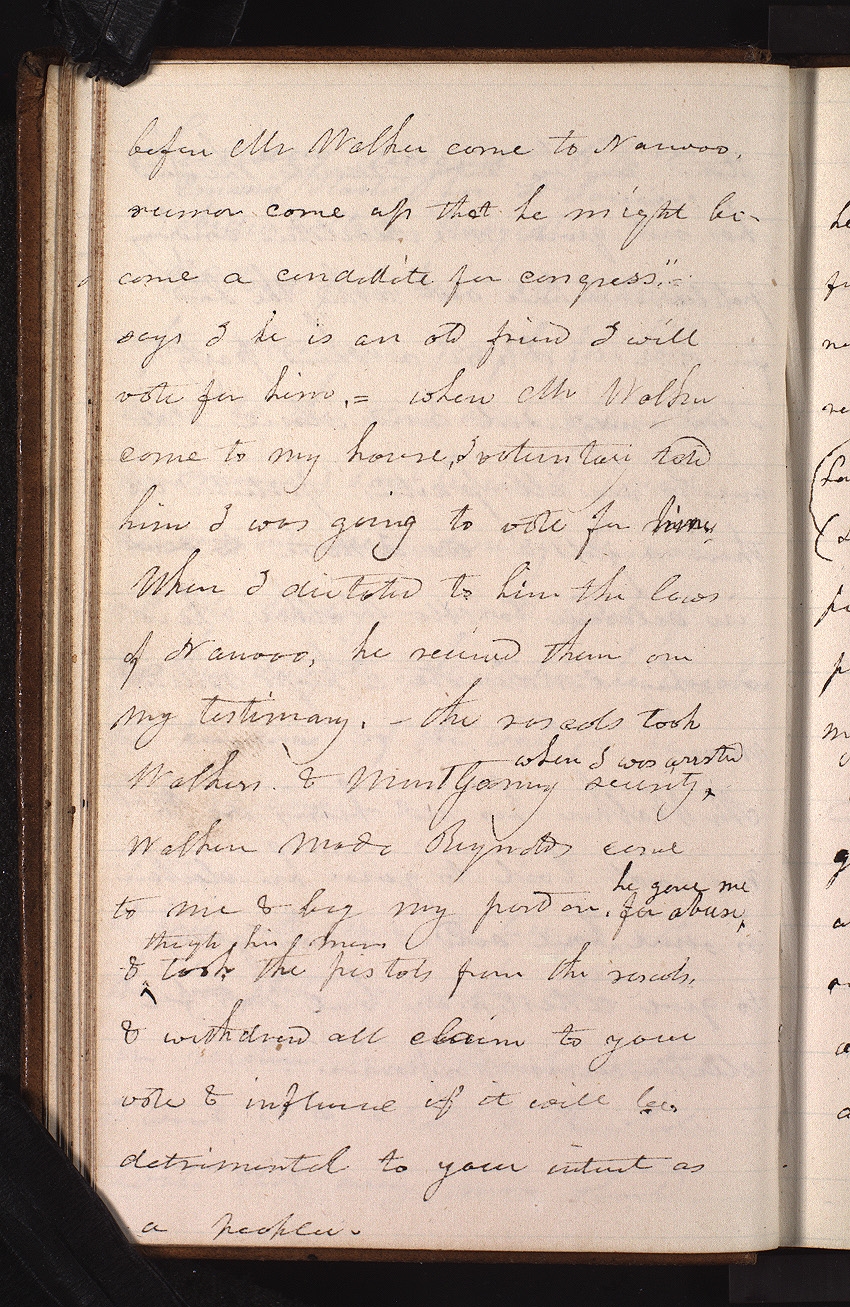 before Mr Walker come to Nauvoo,
rumor come up that he might be-
come a candidate for congress".=
says I he is an old friend I will
vote for him.= when Mr Walker
come to my house, I voluntari told
him I was going to vote for him.
When I dictated to him the laws
of Nauvoo, he received them on
my testimony. – the rascals took
when I was arrested
Walkers. & Montgomery security,
Walker made Reynolds come
he gave me
to me & beg my pardon. for abuse,
through his means
& took the pistols from the rascals.
& withdrew all claim to your
vote & influence if it will be
detrimental to your intrest as
a people.